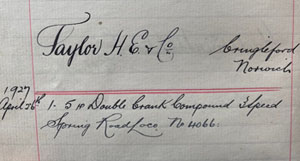 Taylor H. E & Co.
Cringleford
Norwich
1927
April 26th 1. 5 IP Double Crank Compound 3 Speed
Spring Road Loco. No 4066.